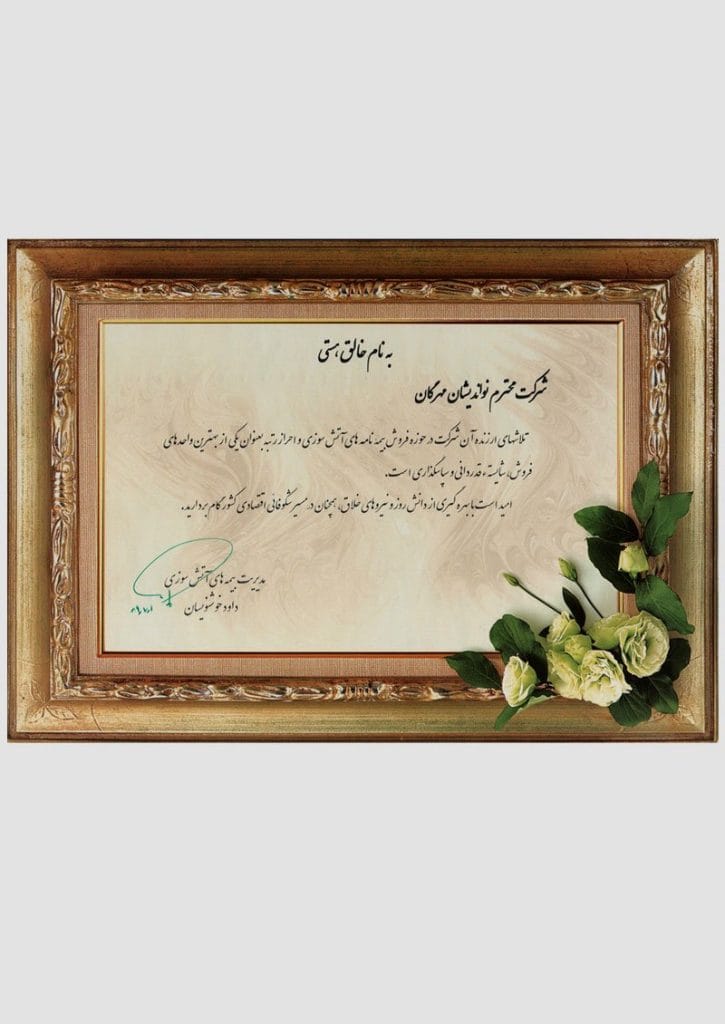 به نام خالق هستی
شرکت محترم نواندیشان مهرگان
تلاشهای ارزنده آن شرکت در حوزه فروش بیمه نامه های آتش سوزی و احراز رتبه بعنوان یکی از بهترین واحدهای
فروش، شایسته قدردانی و سپاسگذاری است.
امید است با بهره گیری از دانش روز و نیروهای خلاق، همچنان در مسیر شکوفائی اقتصادی کشور گام بردارید.
مدیریت بیمه های آتش سوزی
داود خوشنویسان